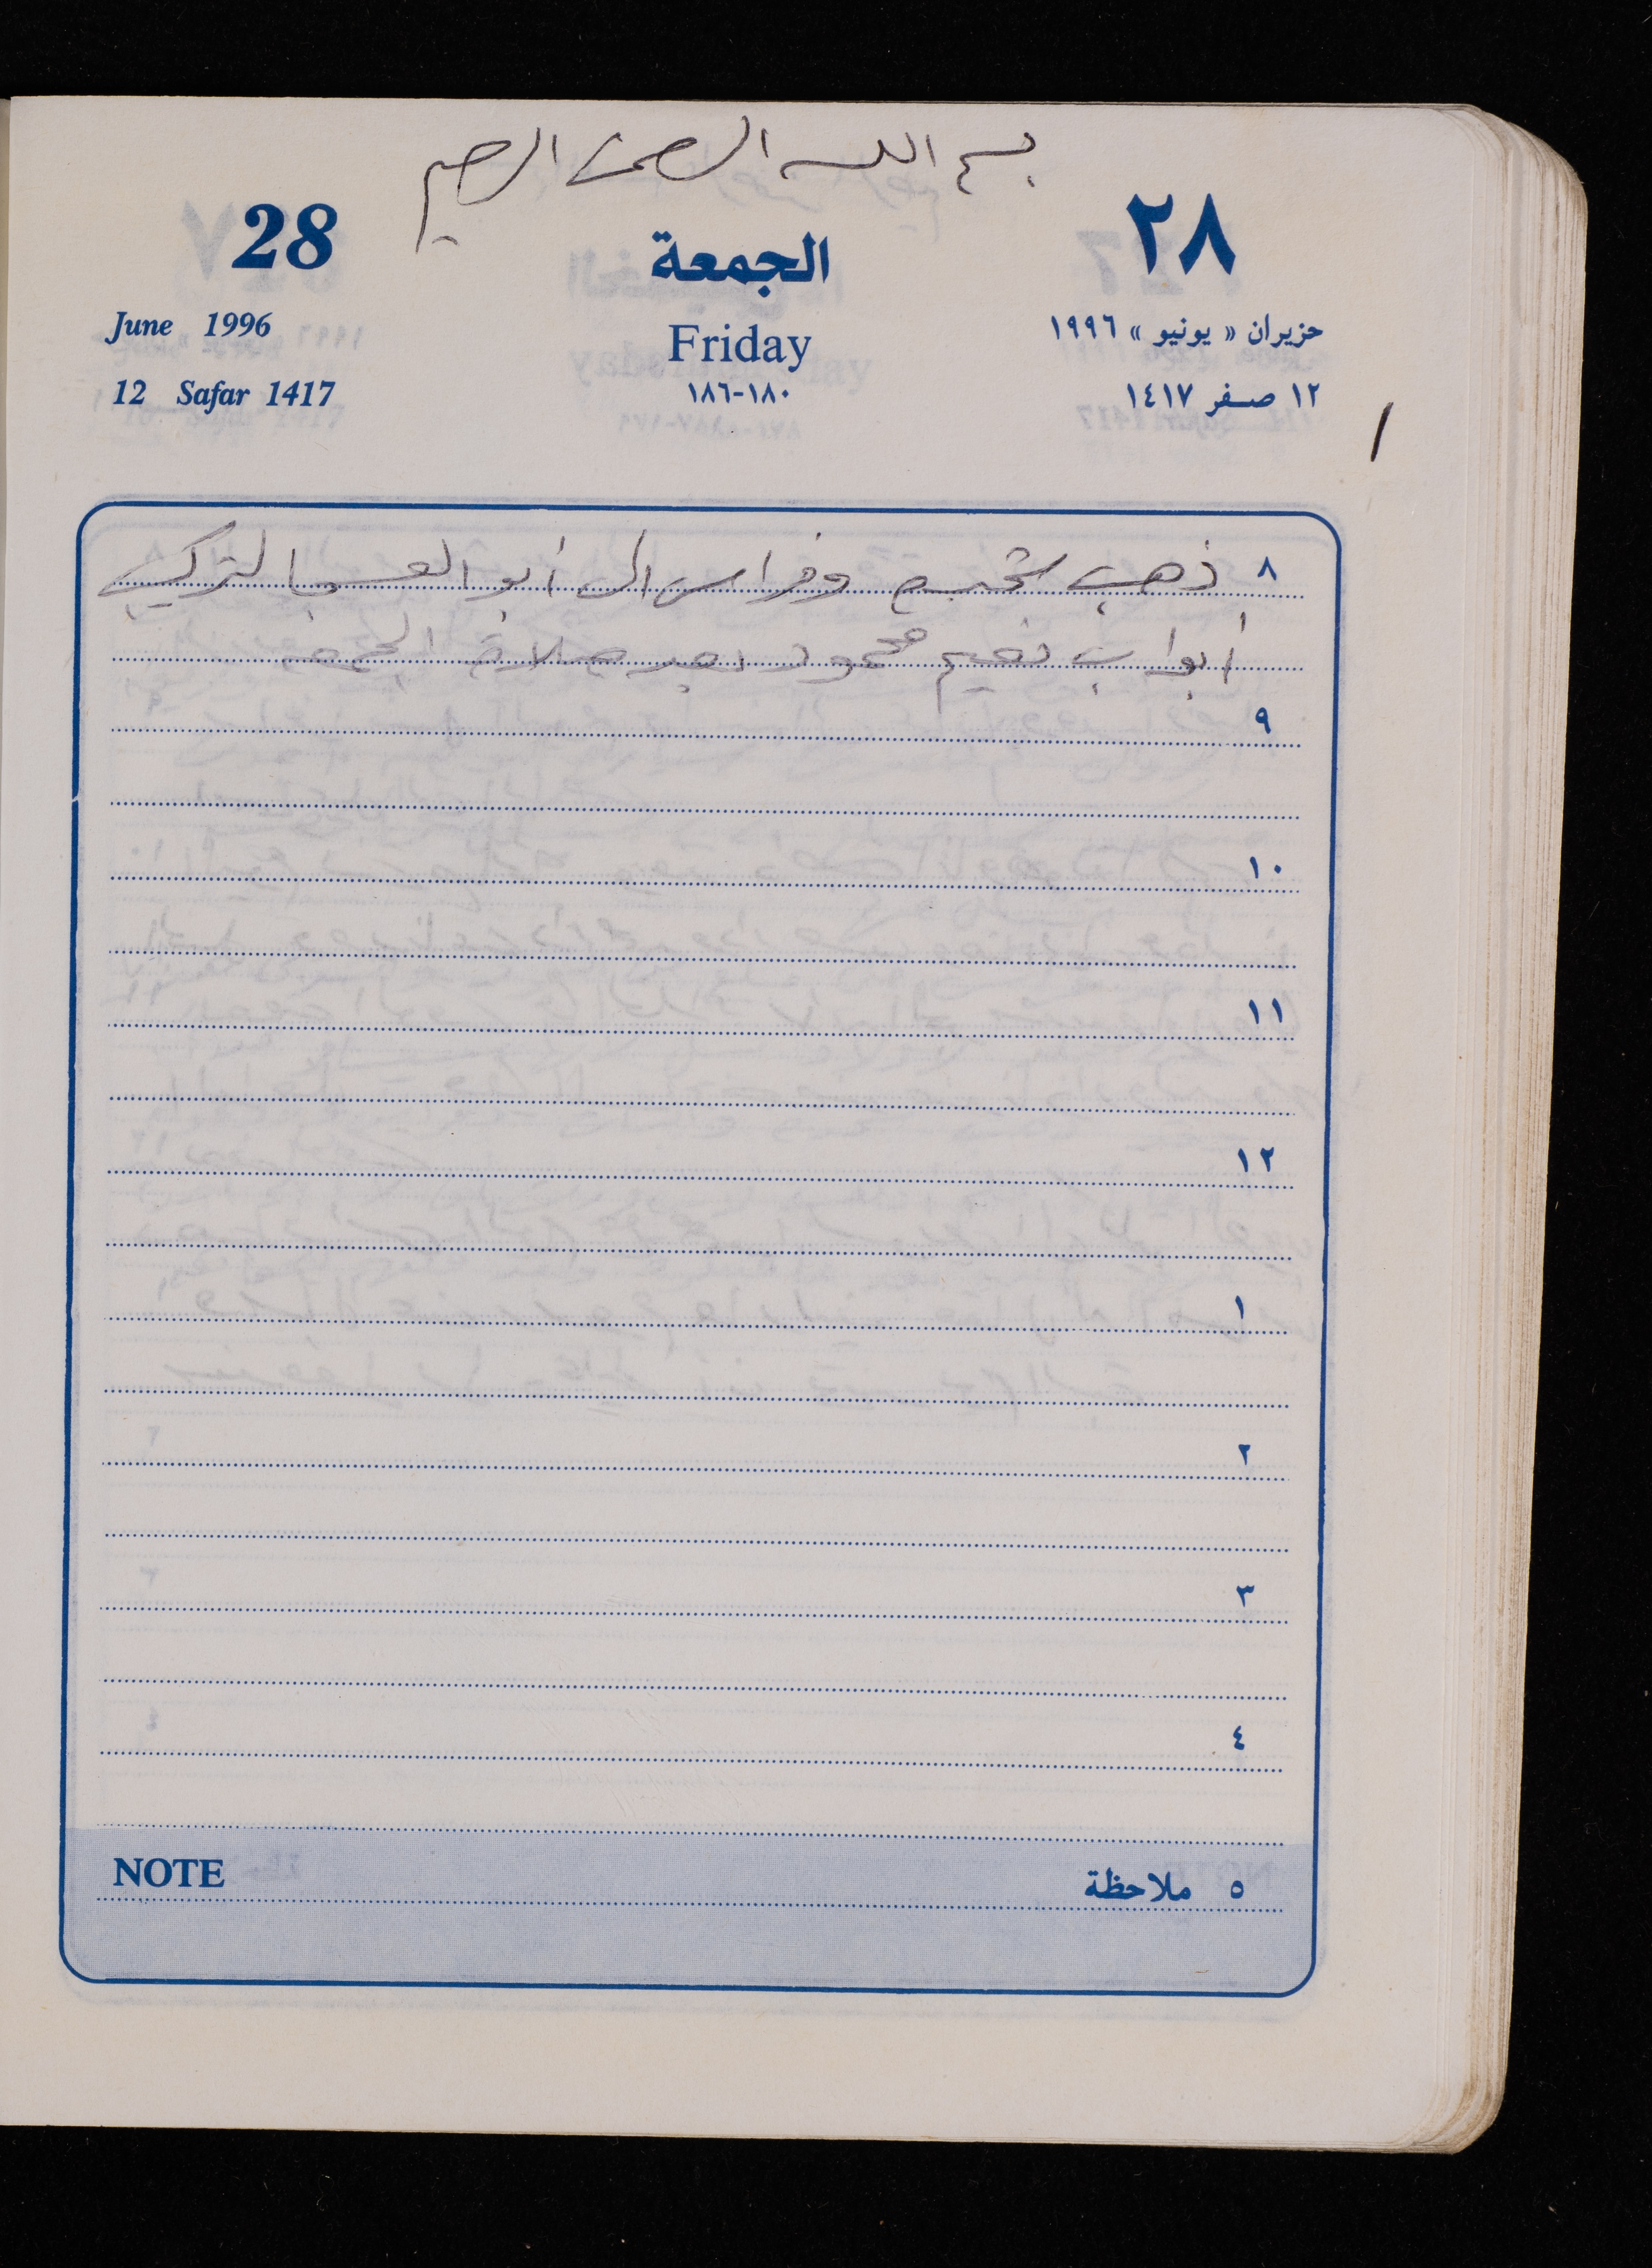 بسم الله الرحمن الرحيم
28 الجمعة ٢٨
June 1996 Friday حزيران « يونيو » ١٩٩٦
12 Safar 1417 ١٨٠-١٨٦ ١٢ صفر ١٤١٧
٨ ذهب وفراس الى أبو لتركيب
أبواب نعيم محمود بعد صلاة الجمعة
٩
١٠
١١
١٢
١
٢
٣
٤
NOTE ٥ ملاحظة